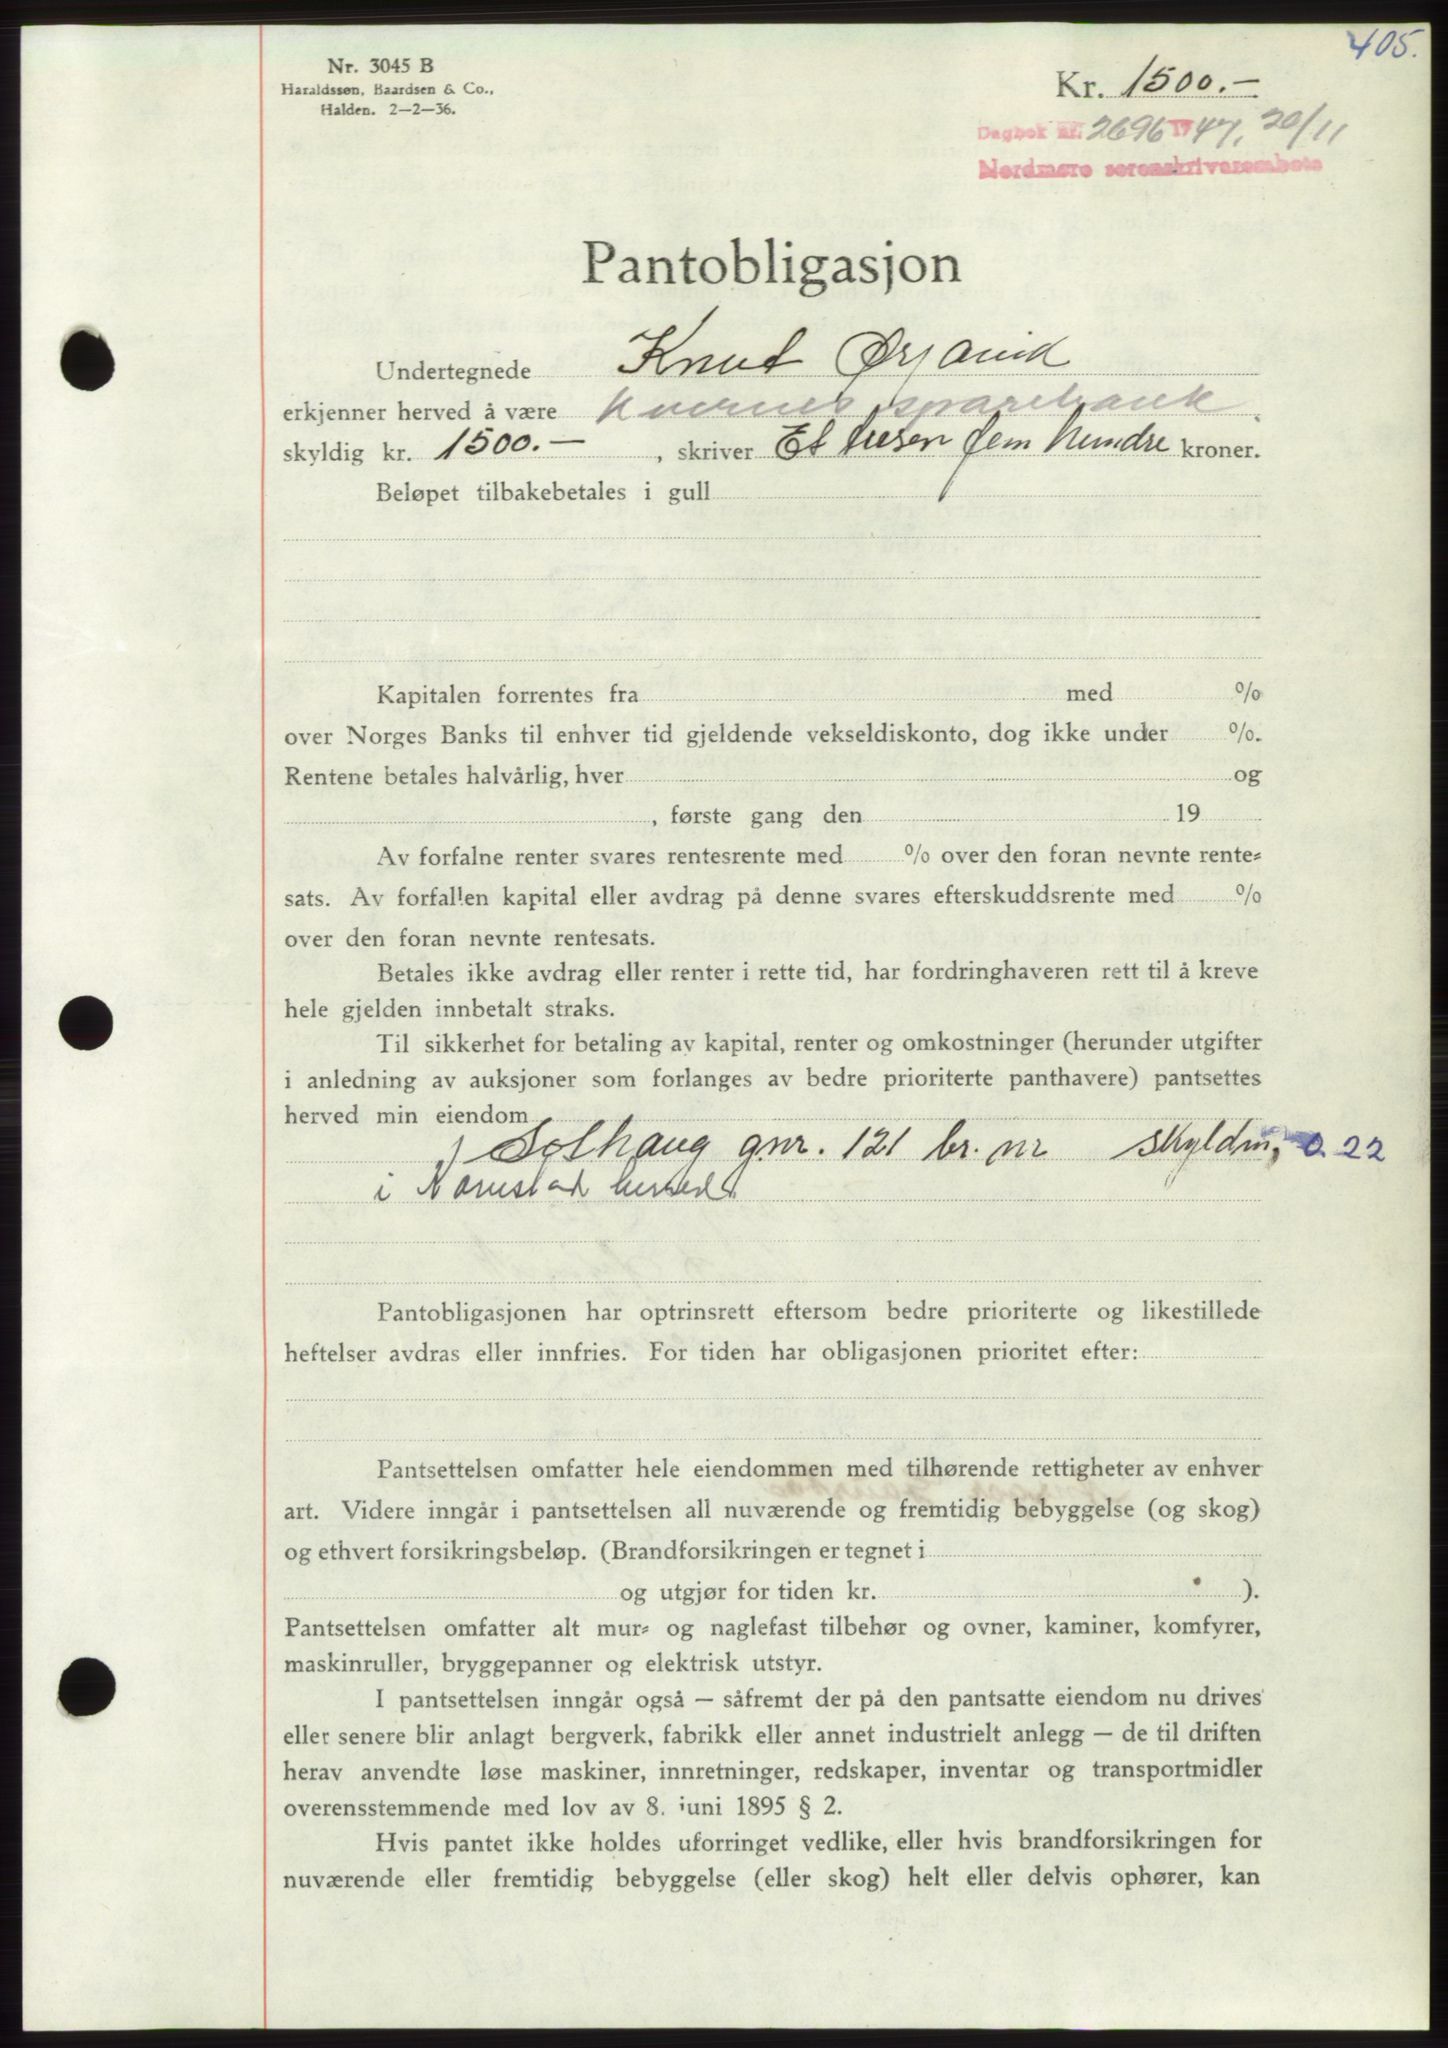 405.
Nr. 3045 B
Haraldssøn, Baardsen & Co.,
Halden. 2-2-36.
Kr. 1500.-
Dagbok nr. 2696 1947, 20/11
Nordmøre sorenskriverembete
Pantobligasjon
Undertegnede Knut
erkjenner herved å være Kvernes sparebank
skyldig kr. 1500.- , skriver Et tusen fem hundre kroner.
Beløpet tilbakebetales i gull
Kapitalen forrentes fra med %
over Norges Banks til enhver tid gjeldende vekseldiskonto, dog ikke under %.
Rentene betales halvårlig, hver og
, første gang den 19
Av forfalne renter svares rentesrente med % over den foran nevnte rente-
sats. Av forfallen kapital eller avdrag på denne svares efterskuddsrente med %
over den foran nevnte rentesats.
Betales ikke avdrag eller renter i rette tid, har fordringhaveren rett til å kreve
hele gjelden innbetalt straks.
Til sikkerhet for betaling av kapital, renter og omkostninger (herunder utgifter
i anledning av auksjoner som forlanges av bedre prioriterte panthavere) pantsettes
herved min eiendom
Solhaug gnr. 121 br. nr skyldm, 0.22
i herred
Pantobligasjonen har optrinsrett eftersom bedre prioriterte og likestillede
heftelser avdras eller innfries. For tiden har obligasjonen prioritet efter:
Pantsettelsen omfatter hele eiendommen med tilhørende rettigheter av enhver
art. Videre inngår i pantsettelsen all nuværende og fremtidig bebyggelse (og skog)
og ethvert forsikringsbeløp. (Brandforsikringen er tegnet i
og utgjør for tiden kr. ).
Pantsettelsen omfatter alt mur- og naglefast tilbehør og ovner, kaminer, komfyrer,
maskinruller, bryggepanner og elektrisk utstyr.
I pantsettelsen inngår også — såfremt der på den pantsatte eiendom nu drives
eller senere blir anlagt bergverk, fabrikk eller annet industrielt anlegg — de til driften
herav anvendte løse maskiner, innretninger, redskaper, inventar og transportmidler
overensstemmende med lov av 8. juni 1895 § 2.
Hvis pantet ikke holdes uforringet vedlike, eller hvis brandforsikringen for
nuværende eller fremtidig bebyggelse (eller skog) helt eller delvis ophører, kan